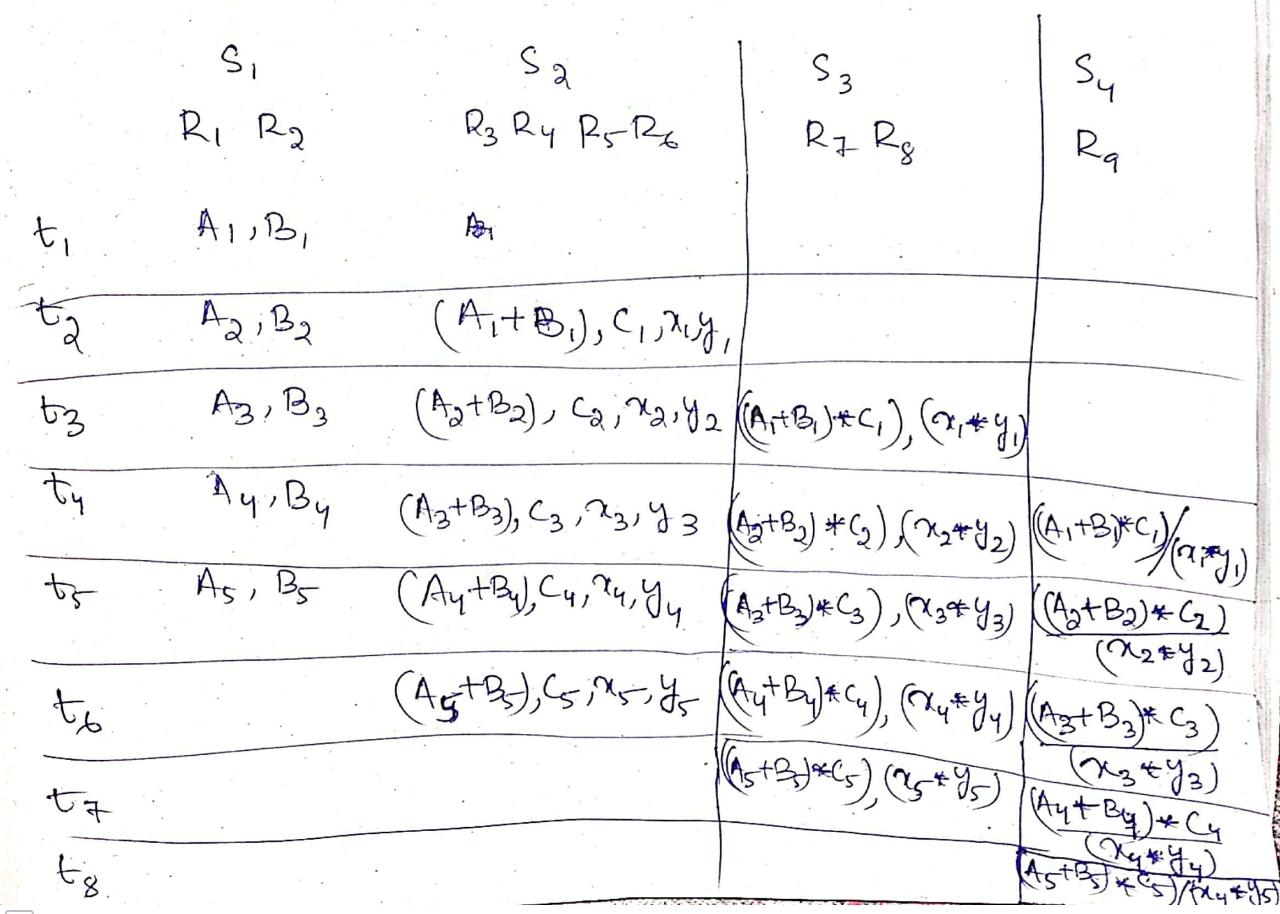 S₁ S₂ S₃ S₄
R₁ R₂ R₃ R₄ R₅ R₆ R₇ R₈ R₉
t₁ A₁, B₁
t₂ A₂, B₂ (A₁+B₁), C₁, x₁, y₁
t₃ A₃, B₃ (A₂+B₂), C₂, x₂, y₂ ((A₁+B₁)*C₁), (x₁*y₁)
t₄ A₄, B₄ (A₃+B₃), C₃, x₃, y₃ ((A₂+B₂)*C₂), (x₂*y₂) ((A₁+B₁)*C₁)/(x₁*y₁)
t₅ A₅, B₅ (A₄+B₄), C₄, x₄, y₄ ((A₃+B₃)*C₃), (x₃*y₃) ((A₂+B₂)*C₂)
(x₂*y₂)
t₆ (A₅+B₅), C₅, x₅, y₅ ((A₄+B₄)*C₄), (x₄*y₄) ((A₃+B₃)*C₃)
(x₃*y₃)
t₇ ((A₅+B₅)*C₅), (x₅*y₅) (A₄+B₄)*C₄
(x₄*y₄)
t₈ (A₅+B₅)*C₅)/(x₄*y₅)